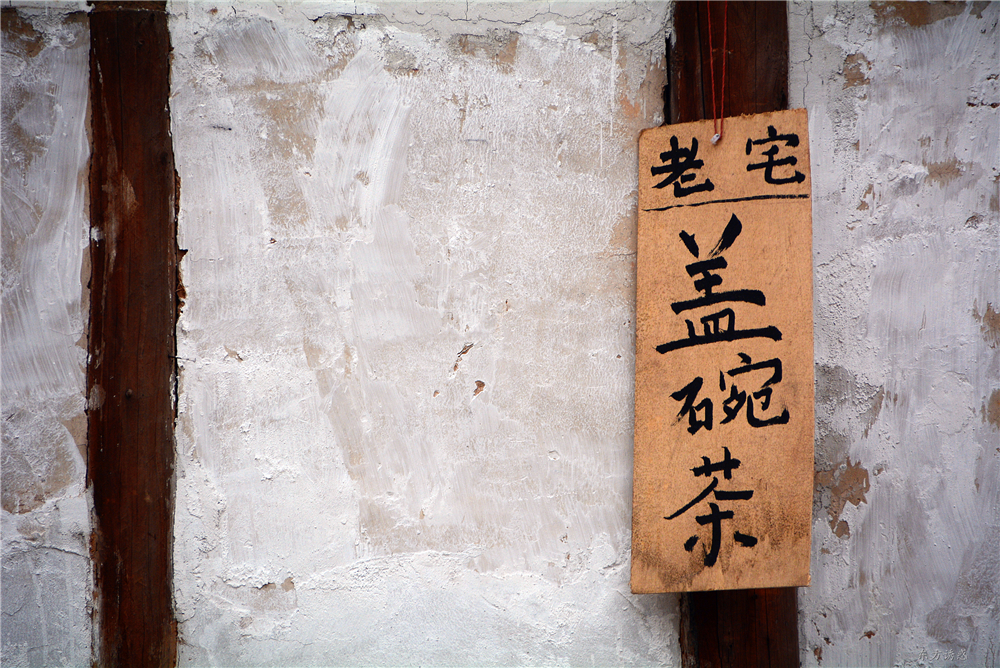 老宅
盖碗茶